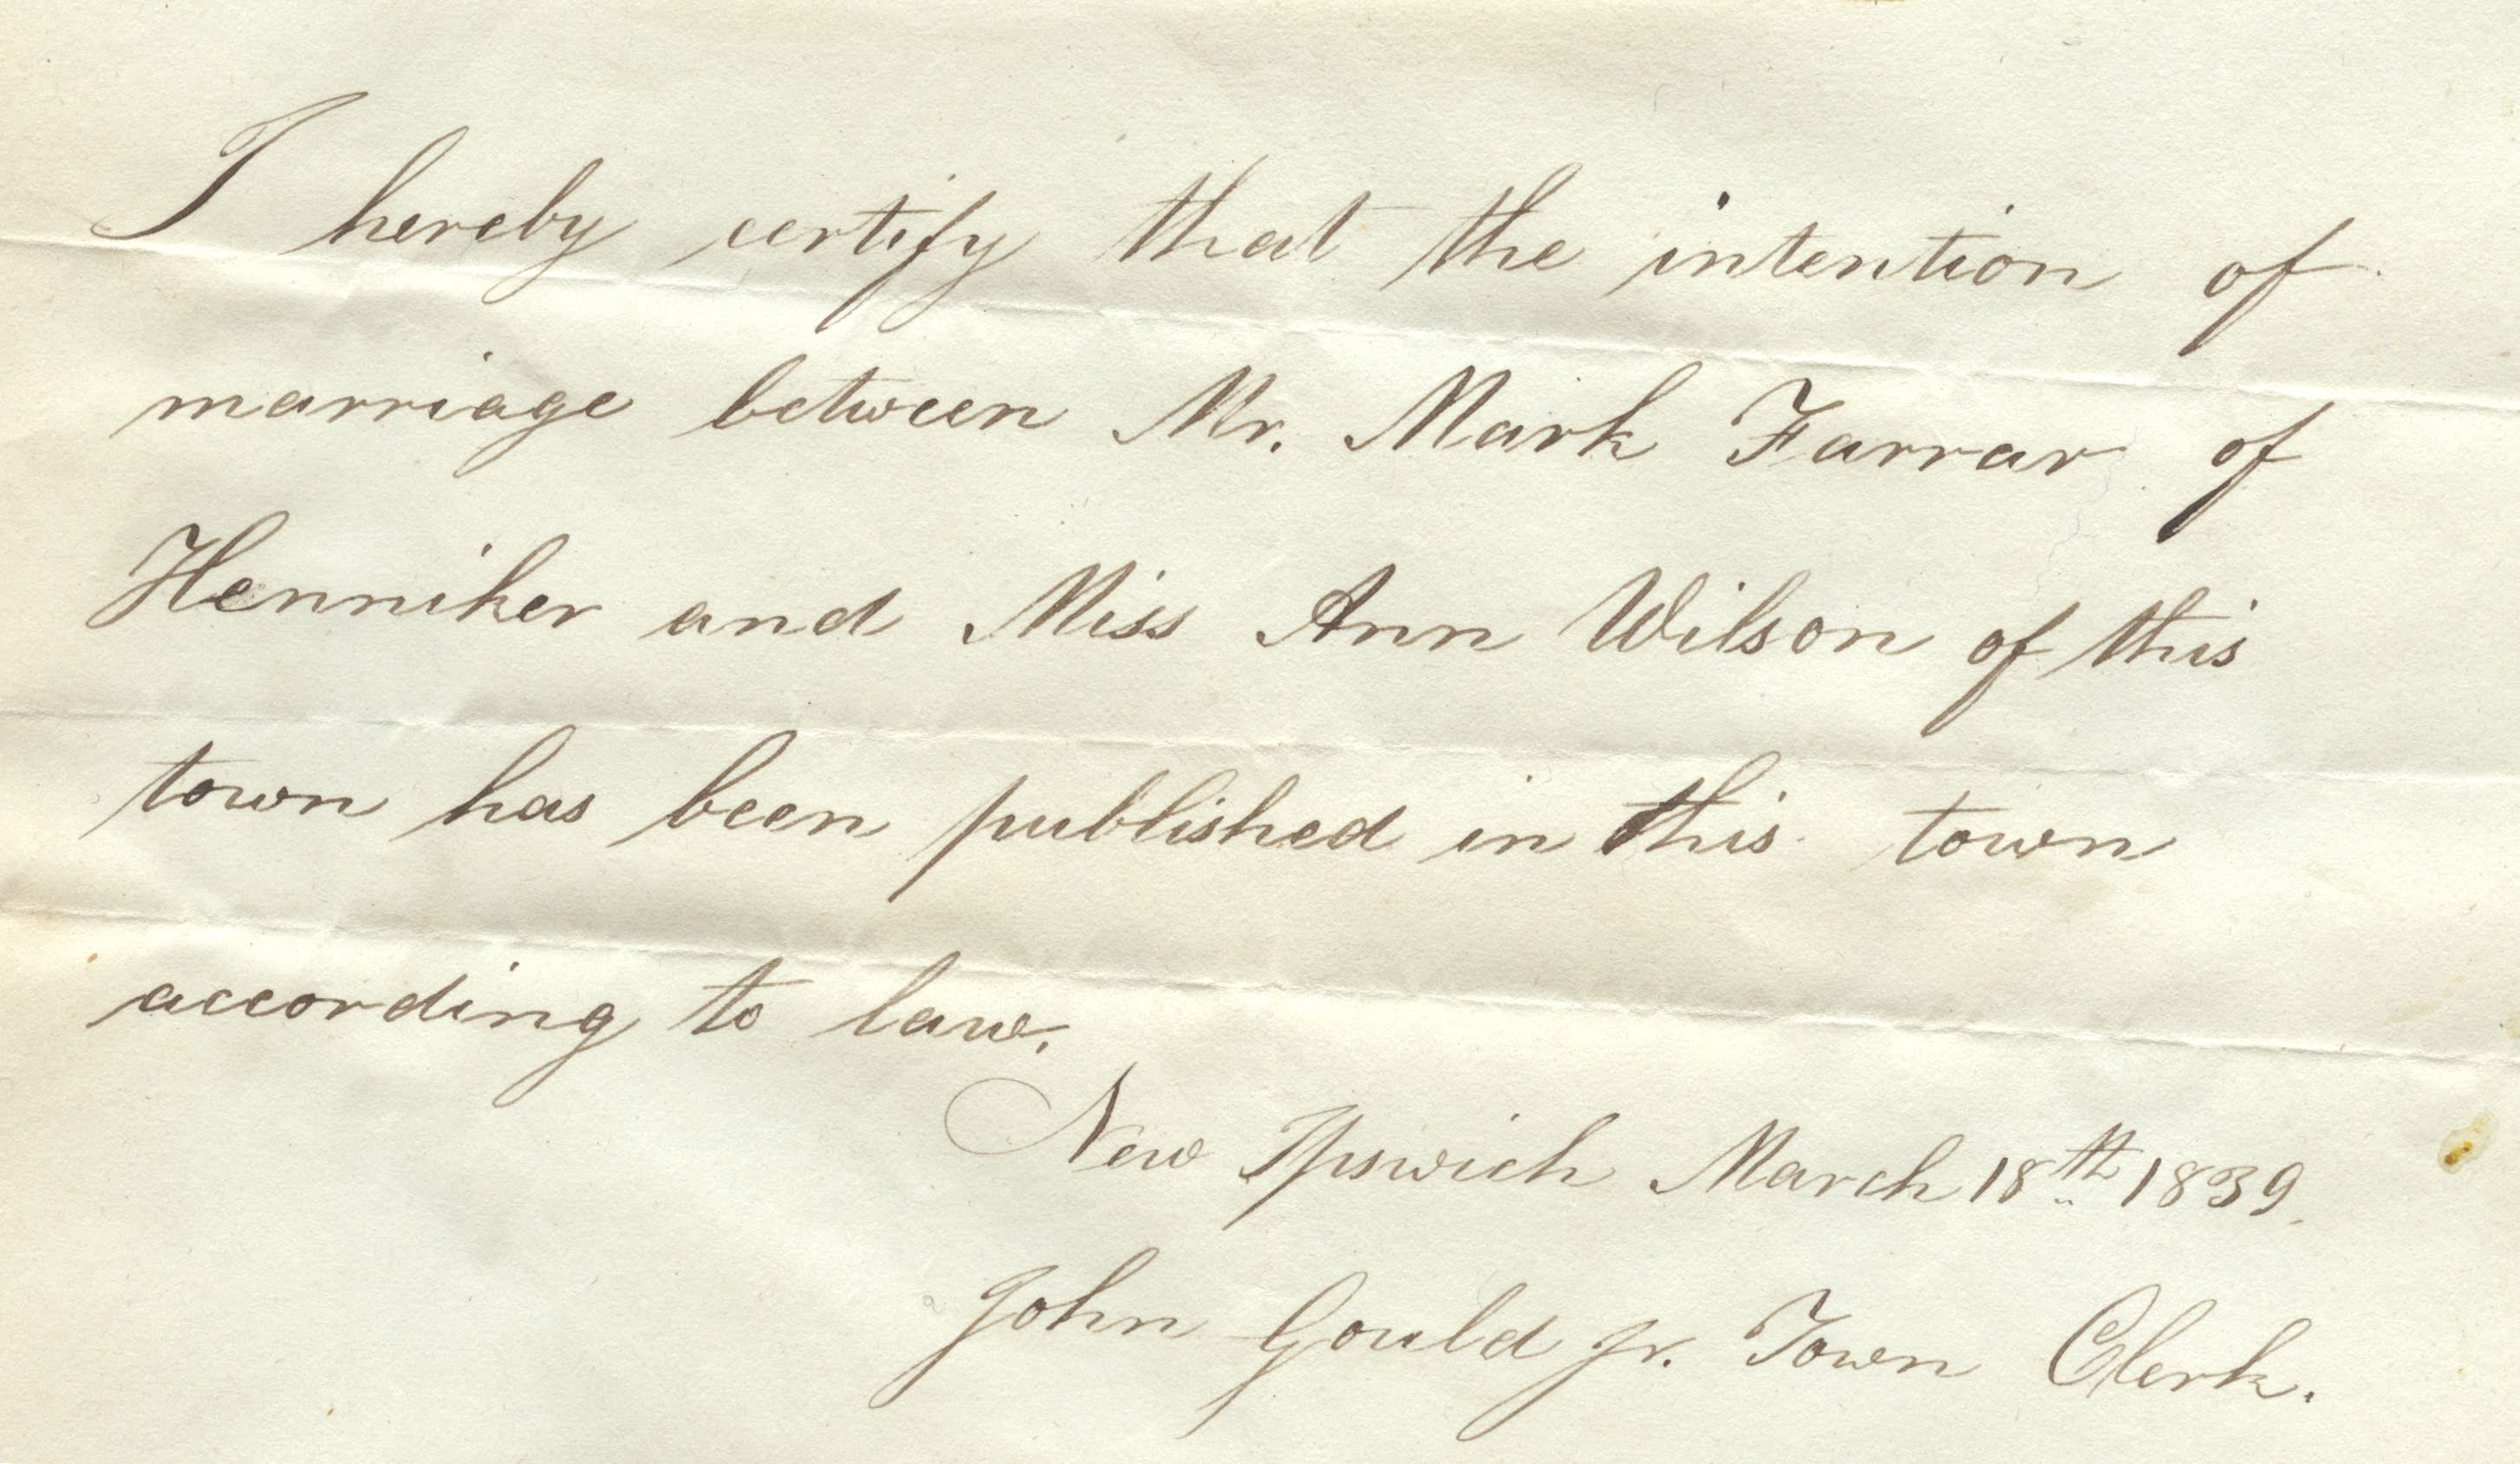 I hereby certify that the intention of
marriage between Mr. Mark Farrar of
Henniker and Miss Ann Wilson of this
town has been published in this town
according to law.
New Ipswich March 18th 1839.
John Gould Jr. Town Clerk.